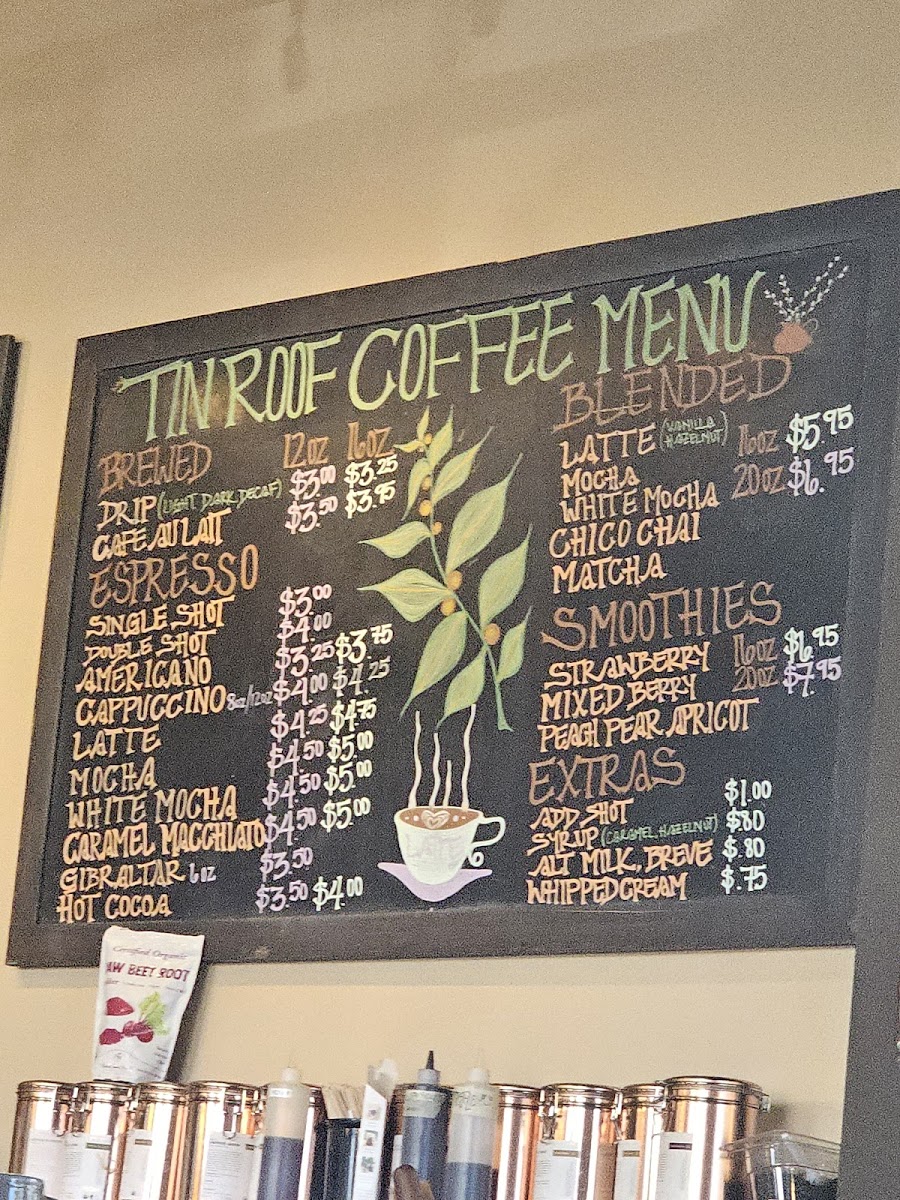 TIN ROOF COFFEE MENU
BREWED 12OZ 16OZ
DRIP (LIGHT DARK DECAF) $3.00 $3.25
CAFE AU LAIT $3.50 $3.95
ESPRESSO
SINGLE SHOT $3.00
DOUBLE SHOT $4.00
AMERICANO $3.25 $3.75
CAPPUCCINO 8oz/12oz $4.00 $4.25
LATTE $4.25 $4.75
MOCHA $4.50 $5.00
WHITE MOCHA $4.50 $5.00
CARAMEL MACCHIATO $4.50 $5.00
GIBRALTAR 6OZ $3.50
HOT COCOA $3.50 $4.00
BLENDED
LATTE (VANILLA HAZELNUT) 16oz $5.95
MOCHA 20oz $6.95
WHITE MOCHA
CHICO CHAI
MATCHA
SMOOTHIES
STRAWBERRY 16oz $6.95
MIXED BERRY 20oz $7.95
PEACH PEAR APRICOT
EXTRAS
ADD SHOT $1.00
SYRUP (CARAMEL, HAZELNUT) $.80
ALT MILK, BREVE $.80
WHIPPED CREAM $.75
Certified Organic
AW BEET ROOT